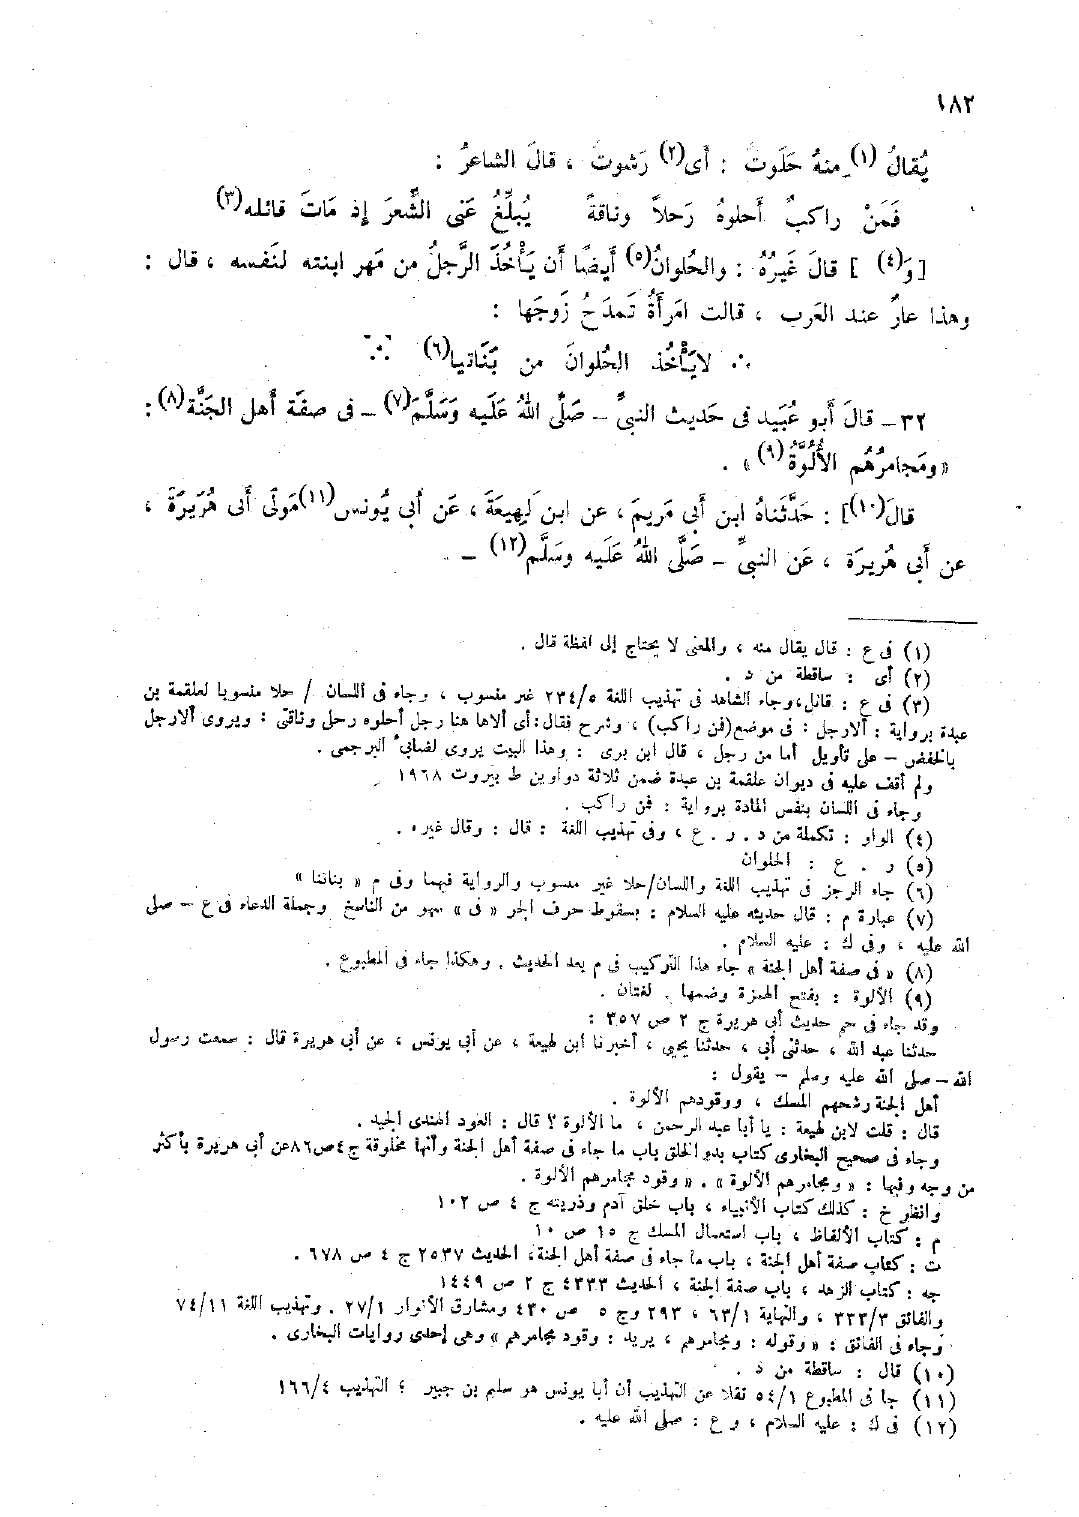 ١٨٢
يُقالُ (١) مِنهُ حَلَوتُ : أَى (٢) رَشوتُ ، قالَ الشاعرُ :
فَمَنْ راكبٌ أَحلوهُ رَحلاً وناقةً يُبلِّغُ عَنى الشِّعرَ إِذ مَاتَ قائله (٣)
[وَ (٤) ] قالَ غَيرُهُ : والحُلوانُ (٥) أَيضًا أَن يَأْخُذَ الرَّجلُ من مَهر ابنته لنَفسه ، قال :
وهذا عارٌ عند العَرب ، قالت امرَأَةٌ تَمدَحُ زَوجَها :
∴ لايَأْخُذ الحُلوانَ من بَنَاتيا (٦) ∵
٣٢ – قالَ أَبو عُبَيد فى حَديث النبىِّ – صَلَّى اللهُ عَلَيه وَسَلَّمَ (٧) – فى صفَة أَهل الجَنَّة (٨) :
« ومَجامرُهُم الأُلُوَّةُ (٩) » .
قالَ (١٠)] : حَدَّثَناهُ ابن أَبى مَريمَ ، عن ابن لَهيعَةَ ، عَن أَبى يُونس (١١) مَولَى أَبى هُرَيرَةَ ،
عن أَبى هُريرَة ، عَن النبىِّ – صَلَّى اللهُ عَلَيه وسَلَّم (١٢) – .
(١) فى ع : قال يقال منه ، والمعنى لا يحتاج إلى لفظة قال .
(٢) أى : ساقطة من د .
(٣) فى ع : قاتل، وجاء الشاهد فى تهذيب اللغة ٢٣٤/٥ غير منسوب ، وجاء فى اللسان / حلا منسوبا لعلقمة بن
عبدة برواية : ألارجل : فى موضع (فمن راكب) ، وشرح فقال : أى ألاها هنا رجل أحلوه رحلى وناقتى : ويروى ألارجل
بالخفض – على تأويل أما من رجل ، قال ابن برى : وهذا البيت يروى لضابئ البرجمى .
ولم أقف عليه فى ديوان علقمة بن عبدة ضمن ثلاثة دواوين ط بيروت ١٩٦٨ .
وجاء فى اللسان بنفس المادة برواية : فمن راكب .
(٤) الواو : تكملة من د . ر . ع ، وفى تهذيب اللغة : قال : وقال غيره .
(٥) ر . ع : الحلوان
(٦) جاء الرجز فى تهذيب اللغة واللسان/حلا غير منسوب والرواية فيهما وفى م « بناتنا »
(٧) عبارة م : قال حديثه عليه السلام : بسقوط حرف الجر « فى » سهو من الناسخ وجملة الدعاء فى ع – صلى
الله عليه ، وفى ك : عليه السلام .
(٨) « فى صفة أهل الجنة » جاء هذا التركيب فى م بعد الحديث . وهكذا جاء فى المطبوع .
(٩) الألوة : بفتح الهمزة وضمها . لغتان .
وقد جاء فى حم حديث أبى هريرة ج ٢ ص ٣٥٧ :
حدثنا عبد الله ، حدثنى أبى ، حدثنا يحيى ، أخبرنا ابن لهيعة ، عن أبى يونس ، عن أبى هريرة قال : سمعت رسول
الله – صلى الله عليه وسلم – يقول :
أهل الجنة رشحهم المسك ، ووقودهم الألوة .
قال : قلت لابن لهيعة : يا أبا عبد الرحمن ، ما الألوة ؟ قال : العود الهندى الجيد .
وجاء فى صحيح البخارى كتاب بدء الخلق باب ما جاء فى صفة أهل الجنة وأنها مخلوقة ج ٤ ص ٨٦ عن أبى هريرة بأكثر
من وجه وفيها : « ومجامرهم الألوة » . « وقود مجامرهم الألوة .
وانظر خ : كذلك كتاب الأنبياء ، باب خلق آدم وذريته ج ٤ ص ١٠٢
م : كتاب الألفاظ ، باب استعمال المسك ج ١٥ ص ١٠
ت : كتاب صفة أهل الجنة ، باب ما جاء فى صفة أهل الجنة، الحديث ٢٥٣٧ ج ٤ ص ٦٧٨ .
جه : كتاب الزهد ، باب صفة الجنة ، الحديث ٤٣٣٣ ج ٢ ص ١٤٤٩
والفائق ٣٣٣/٣ ، والنهاية ٦٣/١ ، ٢٩٣ وج ٥ ص ٤٣٠ ومشارق الأنوار ٢٧/١ . وتهذيب اللغة ٧٤/١١
وجاء فى الفائق : « وقوله : ومجامرهم ، يريد : وقود مجامرهم » وهى إحدى روايات البخارى .
(١٠) قال : ساقطة من د .
(١١) جا فى المطبوع ٥٤/١ نقلا عن التهذيب أن أبا يونس هو سليم بن جبير ؛ التهذيب ١٦٦/٤
(١٢) فى ك : عليه السلام ، و ع : صلى الله عليه .